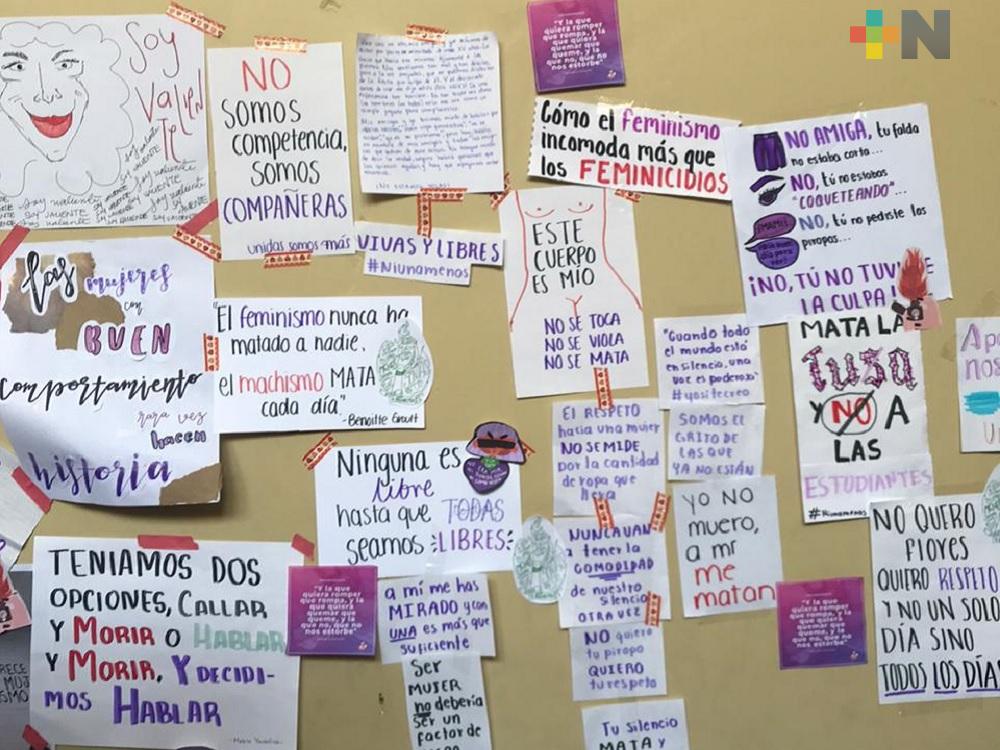 +N
Soy
Valien
Te!
soy valiente
SOY VALIENTE
NO
SOMOS
competencia,
SOMOS
COMPAÑERAS
unidas somos más
"Y la que
quiera romper
que rompa, y la
que quiera
quemar que
queme, y la
que no, que no
nos estorbe"
Cómo el feminismo
incomoda más que
los FEMINICIDIOS
NO AMIGA, tu falda
no estaba corta...
NO, tú no estabas
"COQUETEANDO"...
NO, tú no pediste los
piropos...
¡NO, TÚ NO TUV
LA CULPA!
VIVAS Y LIBRES
#Niunamenos
ESTE
CUERPO
ES MÍO
NO SE TOCA
NO SE VIOLA
NO SE MATA
las mujeres
con
BUEN
comportamiento
rara vez
hacen
historia
"El feminismo nunca ha
matado a nadie,
el machismo MATA
cada día"
-Benoitte Groult
"Cuando todo
el mundo está
en silencio, una
voz es poderosa"
#yositecreo
MATA LA
TUSA
Y NO A
LAS
ESTUDIANTES
#Niunamenos
EL RESPETO
hacia una mujer
NO SE MIDE
por la cantidad
de ropa que
lleva
SOMOS EL
GRITO DE
LAS QUE
YA NO ESTÁN
Ninguna es
libre
hasta que TODAS
seamos LIBRES
YO NO
muero,
a mí
me
matan
NO QUERO
FLORES
QUIERO RESPETO
Y NO UN SOLO
DÍA SINO
TODOS LOS DÍA
NUNCA VAN
a tener la
COMODIDAD
de nuestro
silencio
OTRA VEZ
TENIAMOS DOS
OPCIONES, CALLAR
Y MORIR O HABLAR
Y MORIR, Y DECIDI-
MOS HABLAR
"Y la que
quiera romper
que rompa, y la
que quiera
quemar que
queme, y la
que no, que no
nos estorbe"
a mí me has
MIRADO y con
UNA es más que
suficiente
NO quiero
tu piropo
QUIERO
tu respeto
"Y la que
quiera romper
que rompa, y la
que quiera
quemar que
queme, y la
que no, que no
nos estorbe"
Ser
MUJER
no debería
ser un
factor de
Tu silencio
MATA Y